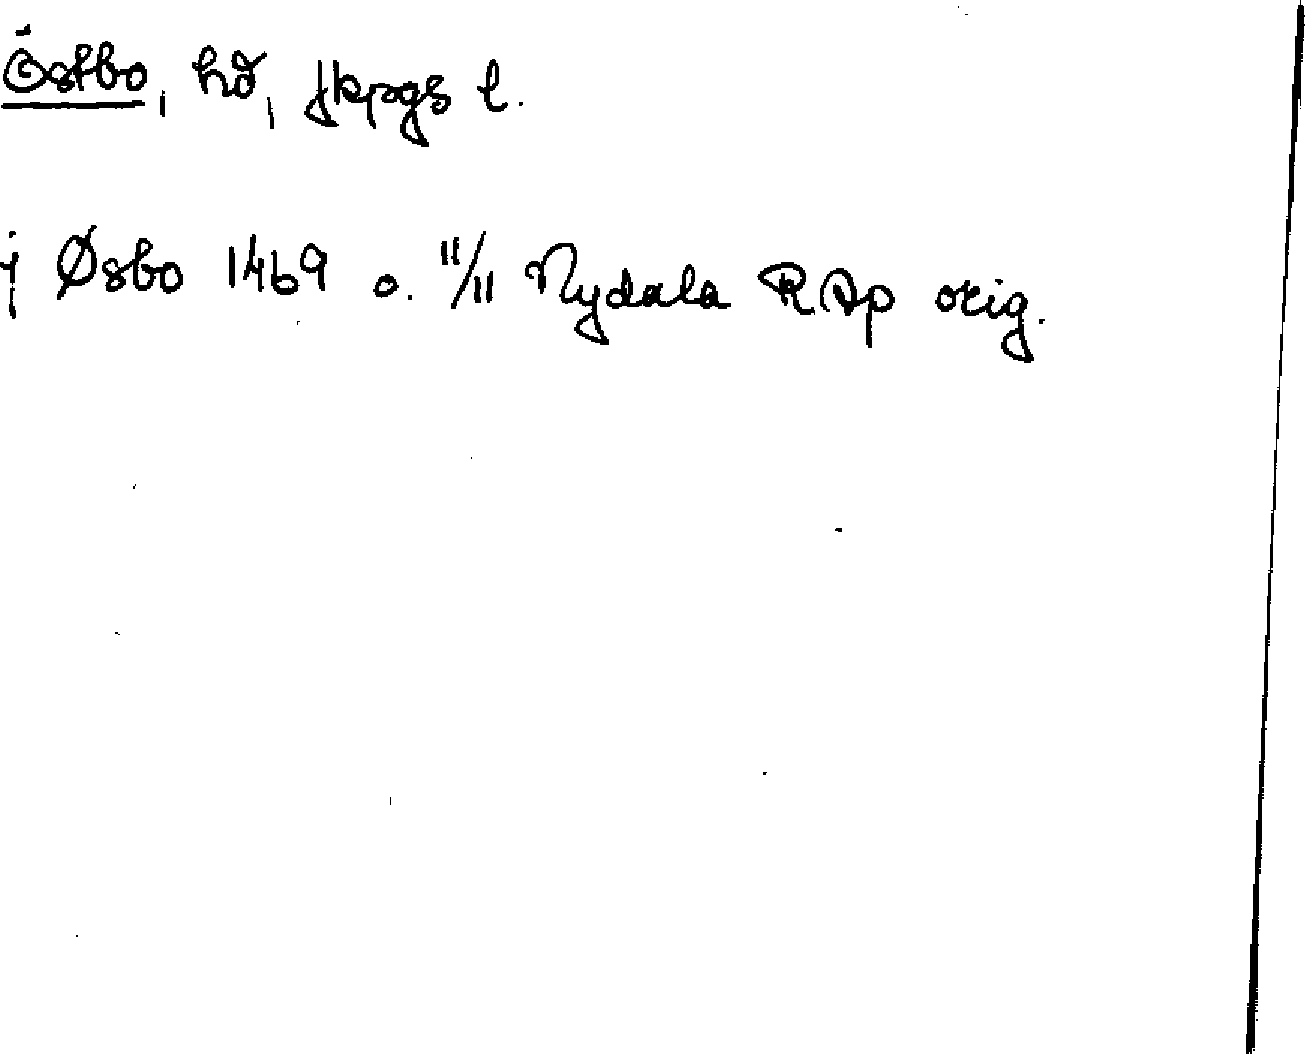 Östbo, hd, Jkpgs l.
j Øsbo 1469 o. 11/11 Nydala RAp orig.